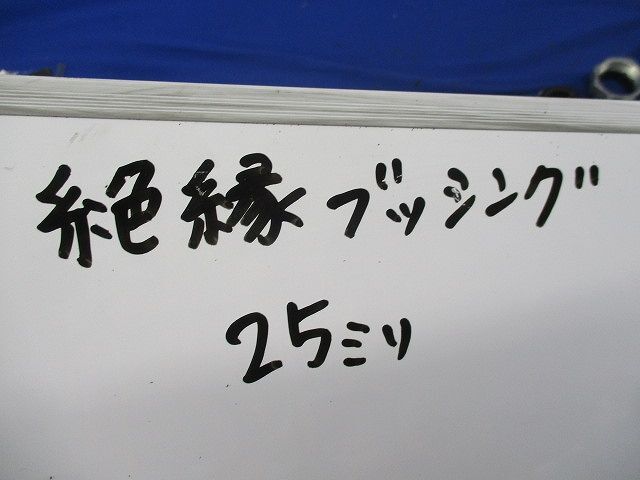 絶縁ブッシング
25ミリ